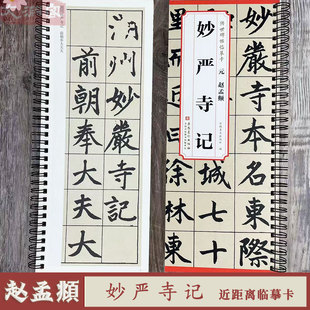 湖州妙嚴寺記
前朝奉大夫大
元 赵孟頫
妙严寺记
嚴寺本名東際
城七十
徐林東
赵孟頫
妙严寺记
近距离临摹卡